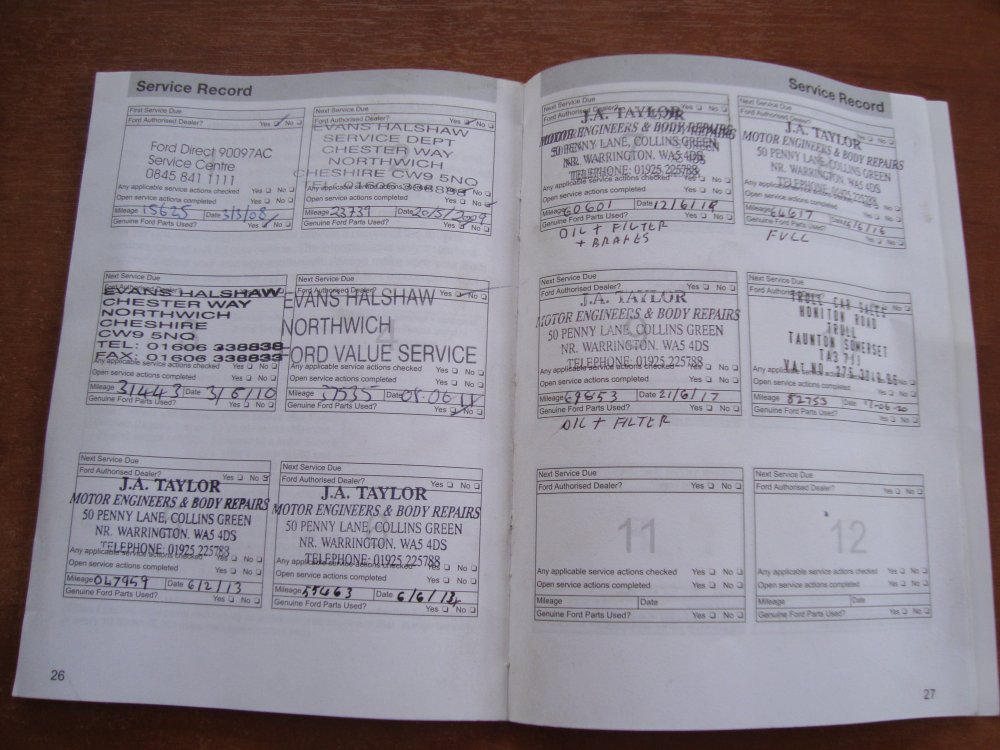 Service Record
First Service Due
Ford Authorised Dealer? Yes No
Ford Direct 90097AC
Service Centre
0845 841 1111
Any applicable service actions checked Yes No
Open service actions completed Yes No
Mileage 15625 Date 3/3/08
Genuine Ford Parts Used? Yes No
Next Service Due
Ford Authorised Dealer? Yes No
EVANS HALSHAW
SERVICE DEPT
CHESTER WAY
NORTHWICH
CHESHIRE CW9 5NQ
TEL: 01606 338833
Any applicable service actions checked Yes No
Open service actions completed Yes No
Mileage 23739 Date 20/5/2009
Genuine Ford Parts Used? Yes No
Next Service Due
Ford Authorised Dealer? Yes No
EVANS HALSHAW
CHESTER WAY
NORTHWICH
CHESHIRE
CW9 5NQ
TEL: 01606 338838
FAX: 01606 338833
Any applicable service actions checked Yes No
Open service actions completed Yes No
Mileage 31443 Date 3/6/10
Genuine Ford Parts Used? Yes No
Next Service Due
Ford Authorised Dealer? Yes No
EVANS HALSHAW
NORTHWICH
FORD VALUE SERVICE
Any applicable service actions checked Yes No
Open service actions completed Yes No
Mileage 37535 Date 08.06.11
Genuine Ford Parts Used? Yes No
Next Service Due
Ford Authorised Dealer? Yes No
J.A. TAYLOR
MOTOR ENGINEERS & BODY REPAIRS
50 PENNY LANE, COLLINS GREEN
NR. WARRINGTON. WA5 4DS
TELEPHONE: 01925 225788
Any applicable service actions checked Yes No
Open service actions completed Yes No
Mileage 047959 Date 6/2/13
Genuine Ford Parts Used? Yes No
Next Service Due
Ford Authorised Dealer? Yes No
J.A. TAYLOR
MOTOR ENGINEERS & BODY REPAIRS
50 PENNY LANE, COLLINS GREEN
NR. WARRINGTON. WA5 4DS
TELEPHONE: 01925 225788
Any applicable service actions checked Yes No
Open service actions completed Yes No
Mileage 55463 Date
Genuine Ford Parts Used? Yes No
26
Service Record
Next Service Due
Ford Authorised Dealer? Yes No
J.A. TAYLOR
MOTOR ENGINEERS & BODY REPAIRS
50 PENNY LANE, COLLINS GREEN
NR. WARRINGTON. WA5 4DS
TELEPHONE: 01925 225788
Any applicable service actions checked Yes No
Open service actions completed Yes No
Mileage 60601 Date
Genuine Ford Parts Used? Yes No
OIL + FILTER
+ BRAKES
Next Service Due
Ford Authorised Dealer? Yes No
J.A. TAYLOR
MOTOR ENGINEERS & BODY REPAIRS
50 PENNY LANE, COLLINS GREEN
NR. WARRINGTON. WA5 4DS
TELEPHONE: 01925 225788
Any applicable service actions checked Yes No
Open service actions completed Yes No
Mileage 64617 /6/16
Genuine Ford Parts Used? Yes No
FULL
Next Service Due
Ford Authorised Dealer? Yes No
J.A. TAYLOR
MOTOR ENGINEERS & BODY REPAIRS
50 PENNY LANE, COLLINS GREEN
NR. WARRINGTON. WA5 4DS
TELEPHONE: 01925 225788
Any applicable service actions checked Yes No
Open service actions completed Yes No
Mileage 69853 Date 21/6/17
Genuine Ford Parts Used? Yes No
OIL + FILTER
Next Service Due
Ford Authorised Dealer? No
TRULL CAR SALES
HONITON ROAD
TRULL
TAUNTON SOMERSET
TA3 7
VAT NO.
Any applicable service actions checked Yes No
Open service actions completed Yes No
Mileage 82753 Date
Genuine Ford Parts Used? Yes No
Next Service Due
Ford Authorised Dealer? Yes No
11
Any applicable service actions checked Yes No
Open service actions completed Yes No
Mileage Date
Genuine Ford Parts Used? Yes No
Next Service Due
Ford Authorised Dealer? Yes No
12
Any applicable service actions checked Yes No
Open service actions completed Yes No
Mileage Date
Genuine Ford Parts Used? Yes No
27